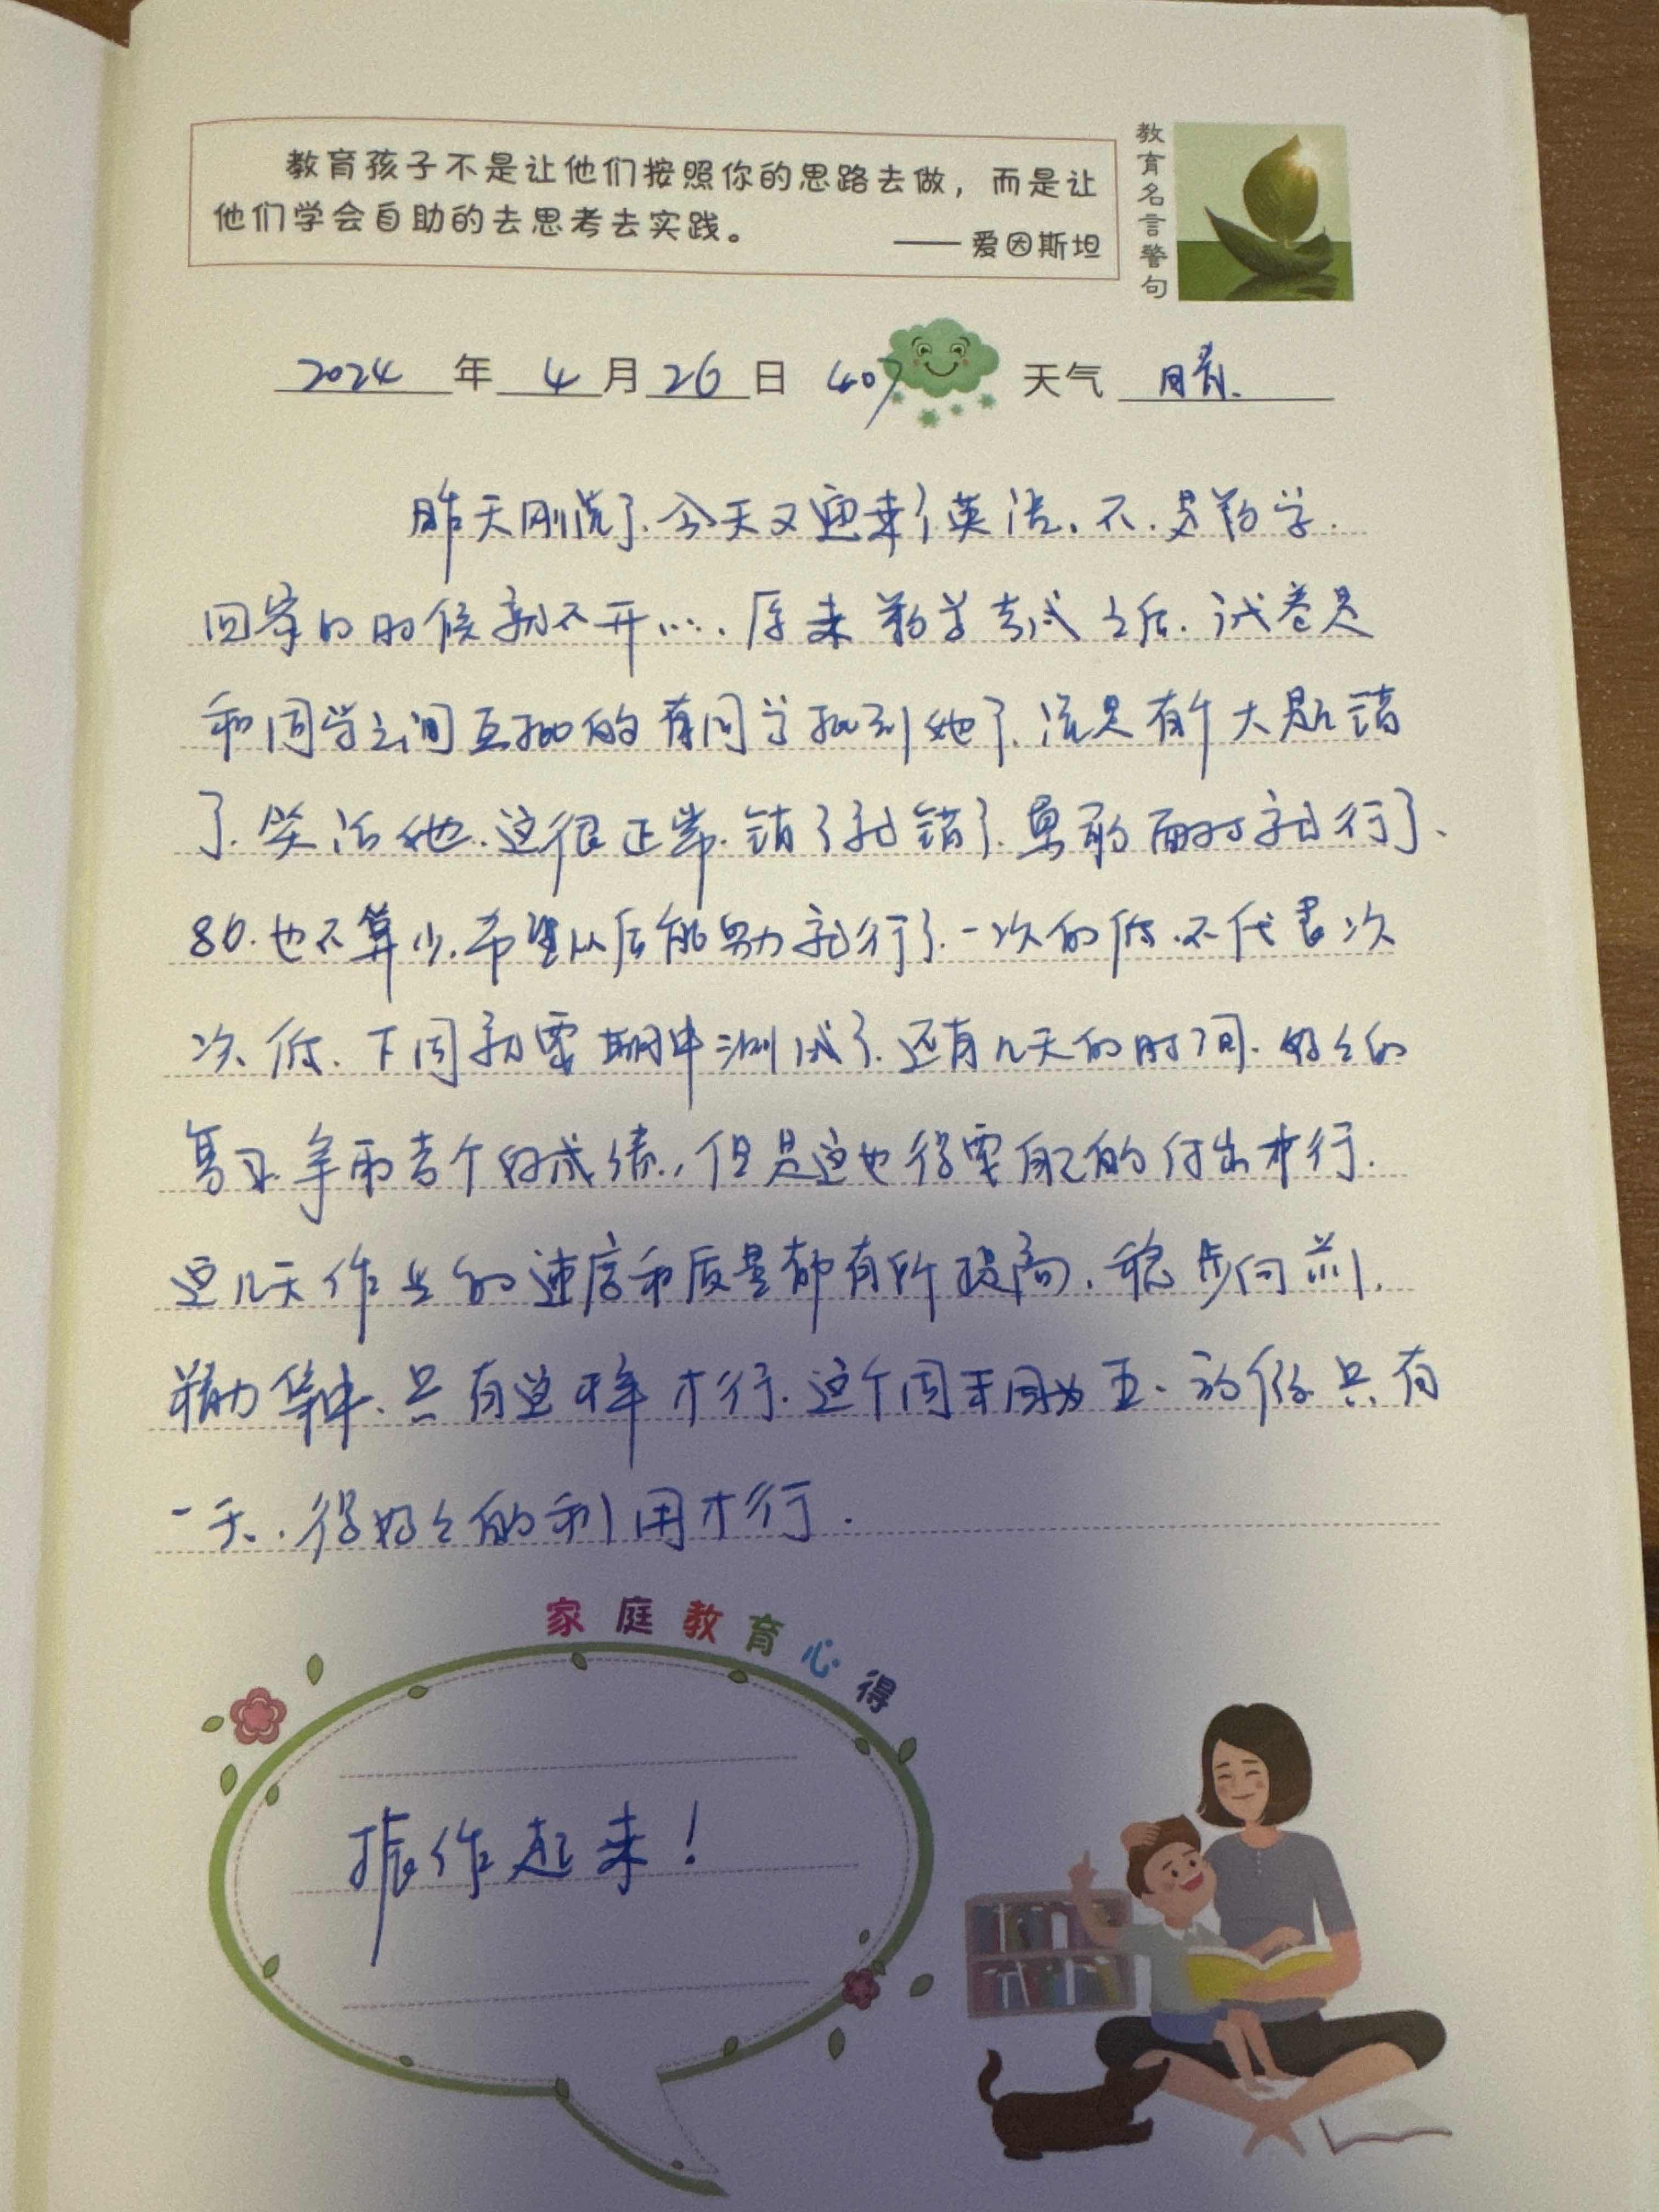 教育孩子不是让他们按照你的思路去做，而是让
他们学会自助的去思考去实践。
——爱因斯坦
教育名言警句
2024年4月26日 407 天气 晴.
昨天刚说了.今天又迎来了英语、不.是数学.
回家的时候就不开心.原来数学考试之后.试卷是
和同学之间互批的有同学批到她了.说是有个大题错
了.笑话她.这很正常.错了就错了.勇敢面对就行了、
80.也不算少.希望以后能努力就行了.一次的低.不代表次
次低、下周就要期中测试了.还有几天的时间.好好的
复习.争取考个好成绩.,但是这也得要自己的付出才行.
这几天作业的速度和质量都有所提高、稳步向前.
精力集中、只有这样才行.这个周末因为五一的假.只有
一天.得好好的利用才行.
家庭教育心得
振作起来！